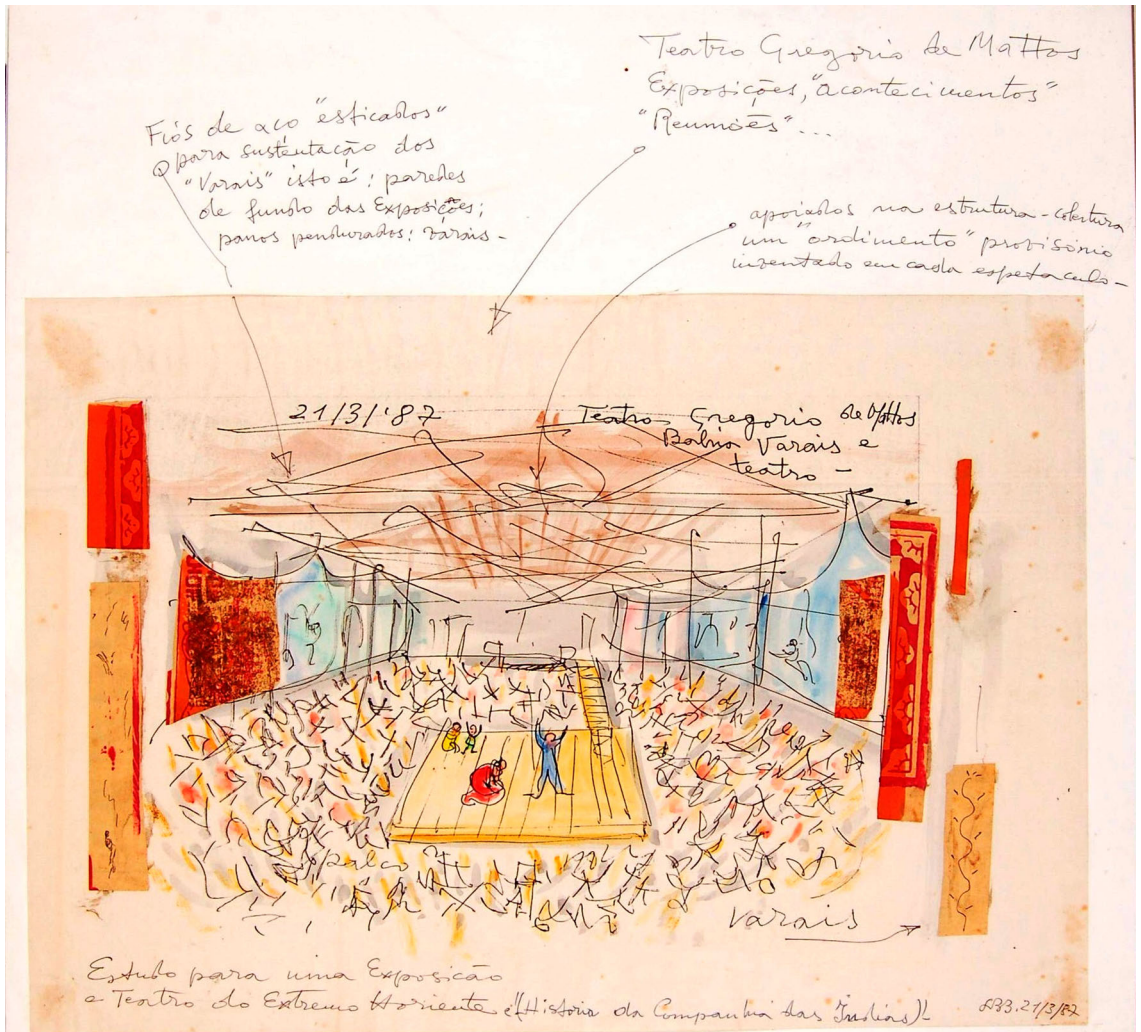 Teatro Gregorio de Mattos
Exposições, "acontecimentos"
"Reuniões"...
Fios de aco "esticados"
para sustentação dos
"Varais" isto é: paredes
de fundo das Exposições;
panos pendurados: varais -
apoiados na estrutura - cobertura
um "ordimento" provisório
inventado em cada espetaculo -
21/3/'87
Teatro Gregorio de Mattos
Bahia Varais e
teatro -
palco
Varais
Estudo para uma Exposicão
e Teatro do Extremo Horiente (Historia da Companhia das Indias)
21/3/87